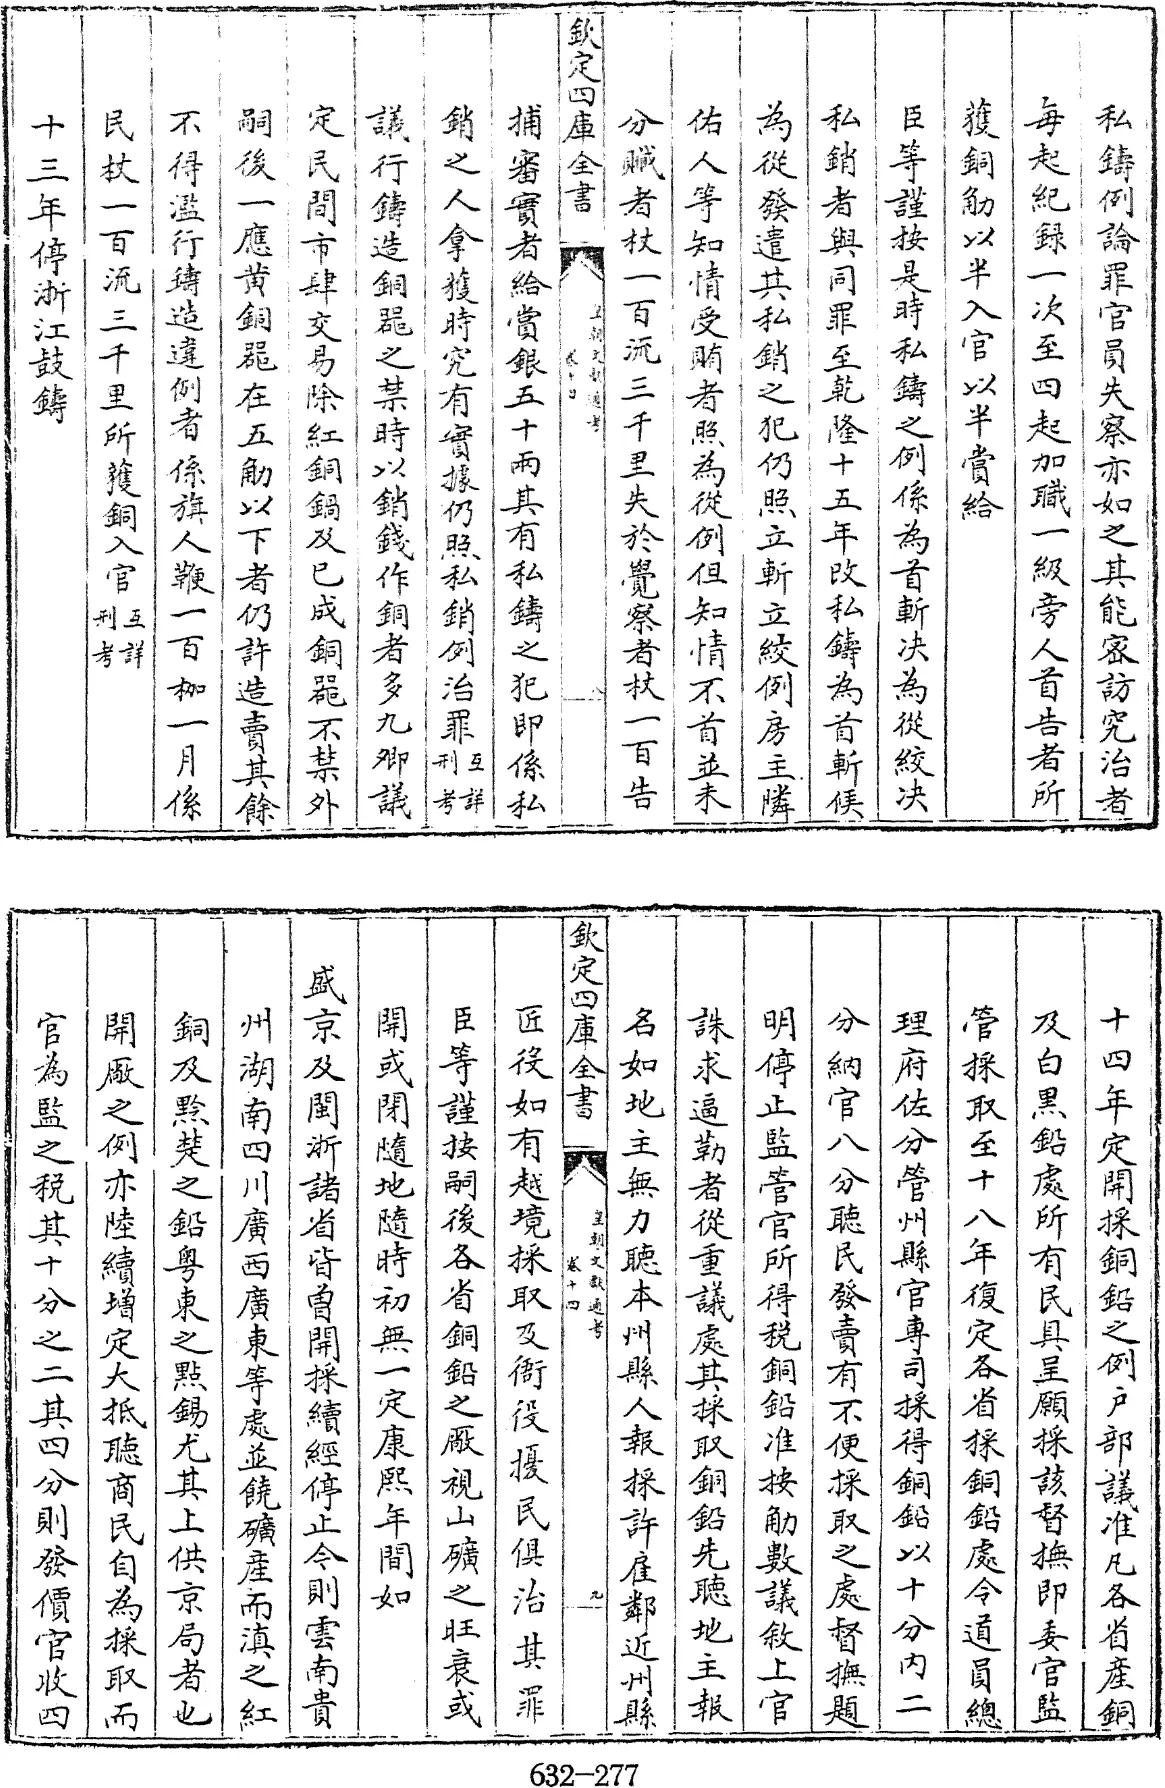 私鑄例論罪官員失察亦如之其能密訪究治者
每起紀録一次至四起加職一級旁人首告者所
獲銅觔以半入官以半賞給
臣等謹按是時私鑄之例係為首斬决為從絞决
私銷者與同罪至乾隆十五年改私鑄為首斬候
為從發遣其私銷之犯仍照立斬立絞例房主隣
佑人等知情受賄者照為從例但知情不首並未
分贜者杖一百流三千里失於覺察者杖一百告
欽定四庫全書
皇朝文獻通考
卷十四
八
捕審實者給賞銀五十兩其有私鑄之犯即係私
銷之人拿獲時究有實據仍照私銷例治罪互詳刑考
議行鑄造銅器之禁時以銷錢作銅者多九卿議
定民間市肆交易除紅銅鍋及已成銅器不禁外
嗣後一應黄銅器在五觔以下者仍許造賣其餘
不得濫行鑄造違例者係旗人鞭一百枷一月係
民杖一百流三千里所獲銅入官互詳刑考
十三年停浙江鼓鑄
十四年定開採銅鉛之例户部議准凡各省産銅
及白黒鉛處所有民具呈願採該督撫即委官監
管採取至十八年復定各省採銅鉛處令道員總
理府佐分管州縣官專司採得銅鉛以十分内二
分納官八分聽民發賣有不便採取之處督撫題
明停止監管官所得税銅鉛准按觔數議敘上官
誅求逼勒者從重議處其採取銅鉛先聽地主報
名如地主無力聽本州縣人報採許雇鄰近州縣
欽定四庫全書
皇朝文獻通考
卷十四
九
匠役如有越境採取及衙役擾民俱治其罪
臣等謹按嗣後各省銅鉛之厰視山礦之旺衰或
開或閉隨地隨時初無一定康熙年間如
盛京及閩浙諸省皆曽開採續經停止今則雲南貴
州湖南四川廣西廣東等處並饒礦産而滇之紅
銅及黔楚之鉛粤東之點錫尤其上供京局者也
開厰之例亦陸續增定大抵聽商民自為採取而
官為監之税其十分之二其四分則發價官收四
632-277